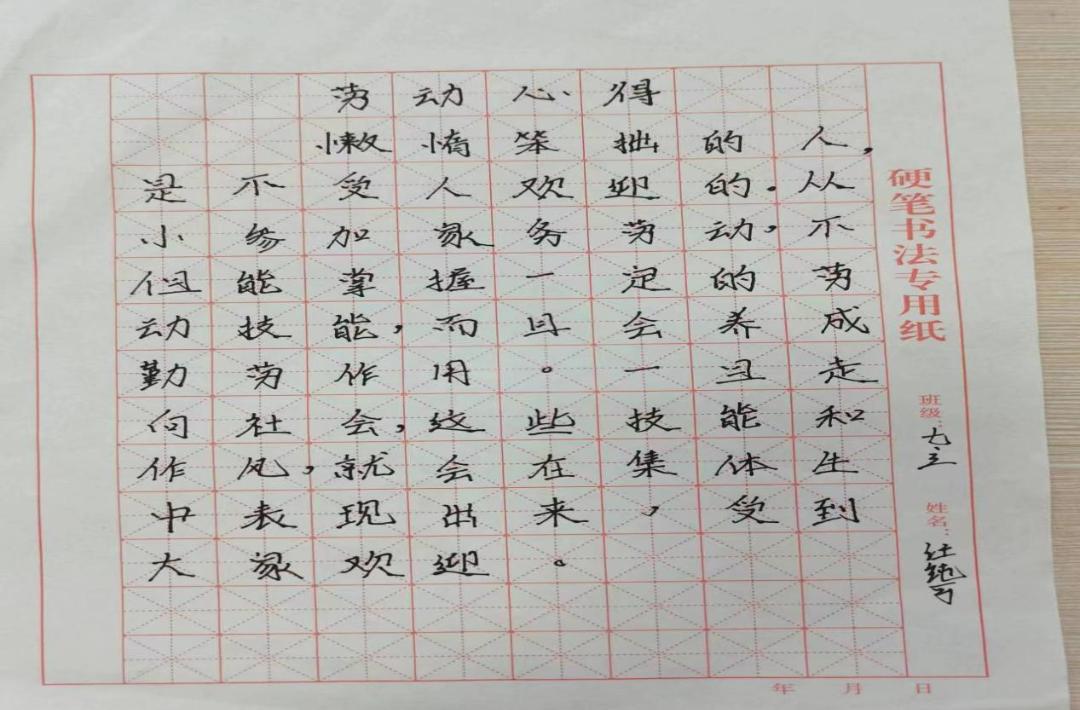 劳动心得
懒惰笨拙的人，
是不受人欢迎的。从
小参加家务劳动，不
但能掌握一定的劳
动技能，而且会养成
勤劳作用。一旦走
向社会，这些技能和
作风，就会在集体生
中表现出来，受到
大家欢迎。
硬笔书法专用纸
班级：九.三
姓名：
年 月 日